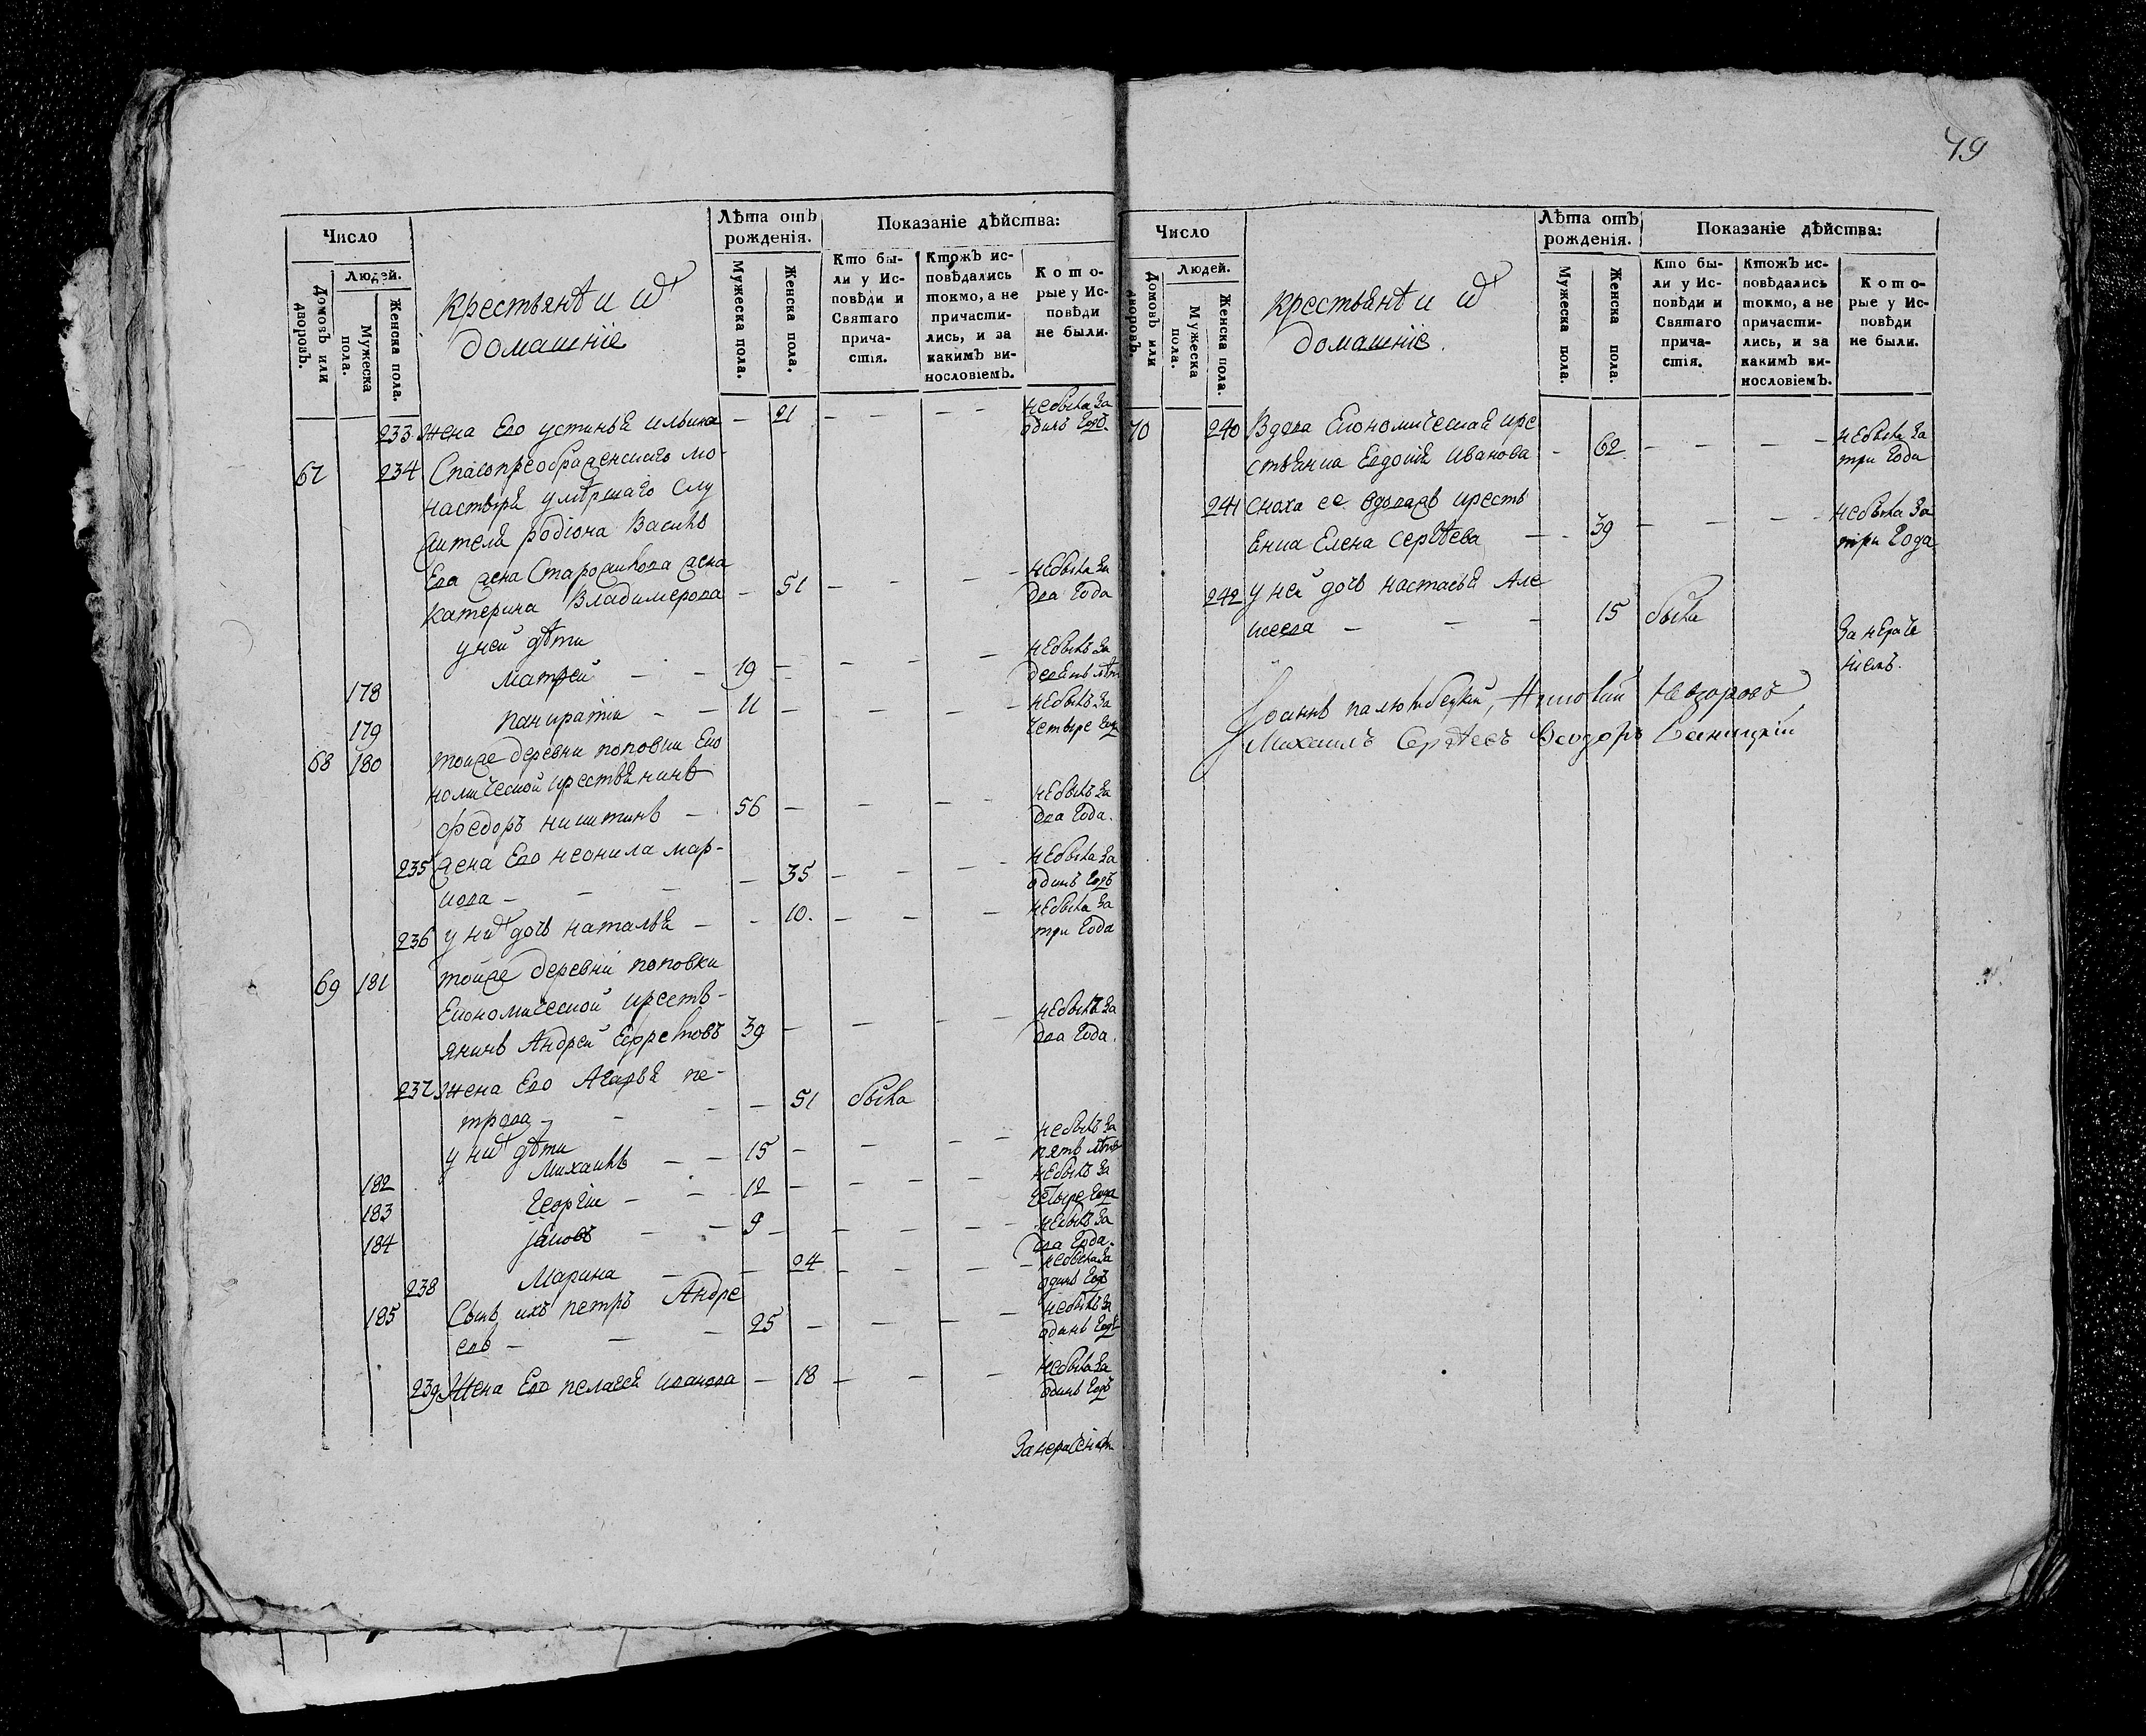 79
Число
Людей.
Домовъ или дворовъ.
Мужеска пола.
Женска пола.
крестьянѣ и ихъ
домашніе
Лѣта отъ
рожденія.
Мужеска пола.
Женска пола.
Показаніе дѣйства:
Кто бы-
ли у Ис-
повѣди и
Святаго
прича-
стія.
Ктожъ ис-
повѣдались
токмо, а не
причасти-
лись, и за
какимъ ви-
нословіемъ.
Кото-
рые у Ис-
повѣди
не были.
233 Жена Его устинья ильина — 21 — — — — не была за
одинъ годъ
67 234 Спасопреображенскаго мо-
настыря умершаго слу
жителя родіона Василь
ева жена
катерина Владимерова — 51 — — — не была за
два года
у ней дѣти
178 Матфей — — 19 — — — — не былъ за
девять лѣтъ
179 панкратій — — 11 — — — — не былъ за
четыре года
68 180 тойже деревни поповки Еко
номической крестьянинъ
федоръ никитинъ — 56 — — — — не былъ за
два года.
235 жена Его неонила мар-
кова — — — — 35 — — — — не была за
одинъ годъ
236 у нихъ дочь наталья — — 10. — — — не была за
три года
69 181 тойже деревни поповки
Економической кресть-
янинъ Андрей Ефремовъ 39 — — — — не былъ за
два года.
237 Жена Его Агафья пе-
трова — — — — 51 была
у нихъ дѣти
182 Михаилъ — — 15 — — — — не былъ за
пять лѣтъ
183 георгій — — 12 — — — — не былъ за
четыре года
184 яковъ — — 9 — — — — не былъ за
два года.
238 Марина — — 24 — — — — не была за
одинъ годъ
185 Сынъ ихъ петръ Андре
евъ — — — 25 — — — — не былъ за
одинъ годъ
239 Жена Его пелагея иванова — 18 — — — не была за
одинъ годъ
За нераченіемъ
Число
Людей.
Домовъ или дворовъ.
Мужеска пола.
Женска пола.
крестьянѣ и ихъ
домашніе.
Лѣта отъ
рожденія.
Мужеска пола.
Женска пола.
Показаніе дѣйства:
Кто бы-
ли у Ис-
повѣди и
Святаго
прича-
стія.
Ктожъ ис-
повѣдались
токмо, а не
причасти-
лись, и за
какимъ ви-
нословіемъ.
Кото-
рые у Ис-
повѣди
не были.
70 240 Вдова Економическая кре
стьянка Евдокія Иванова — 62 — — — — не была за
три года
241 сноха ее вдова кресть
янка Елена Сергѣева — — 39 — — — — не была за
три года
242 у ней дочь настасья Але
ксеева — — — 15 была
За нераче
ніемъ.
Іоаннъ
Михаилъ Сергѣевъ Ѳеодоръ